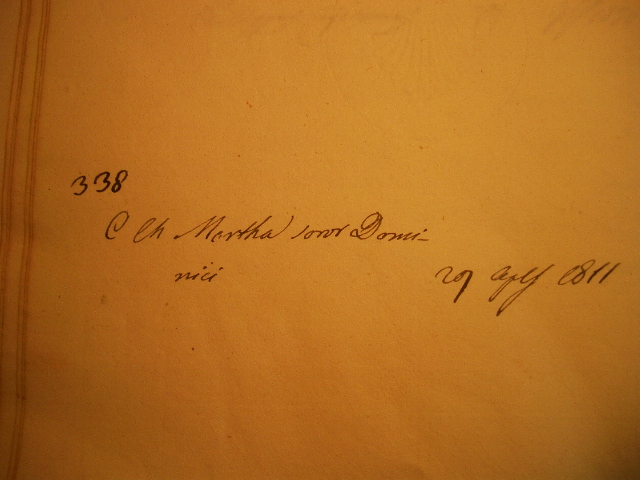 338
C Ch Martha soror Domi-
nici 29 aplf 1811